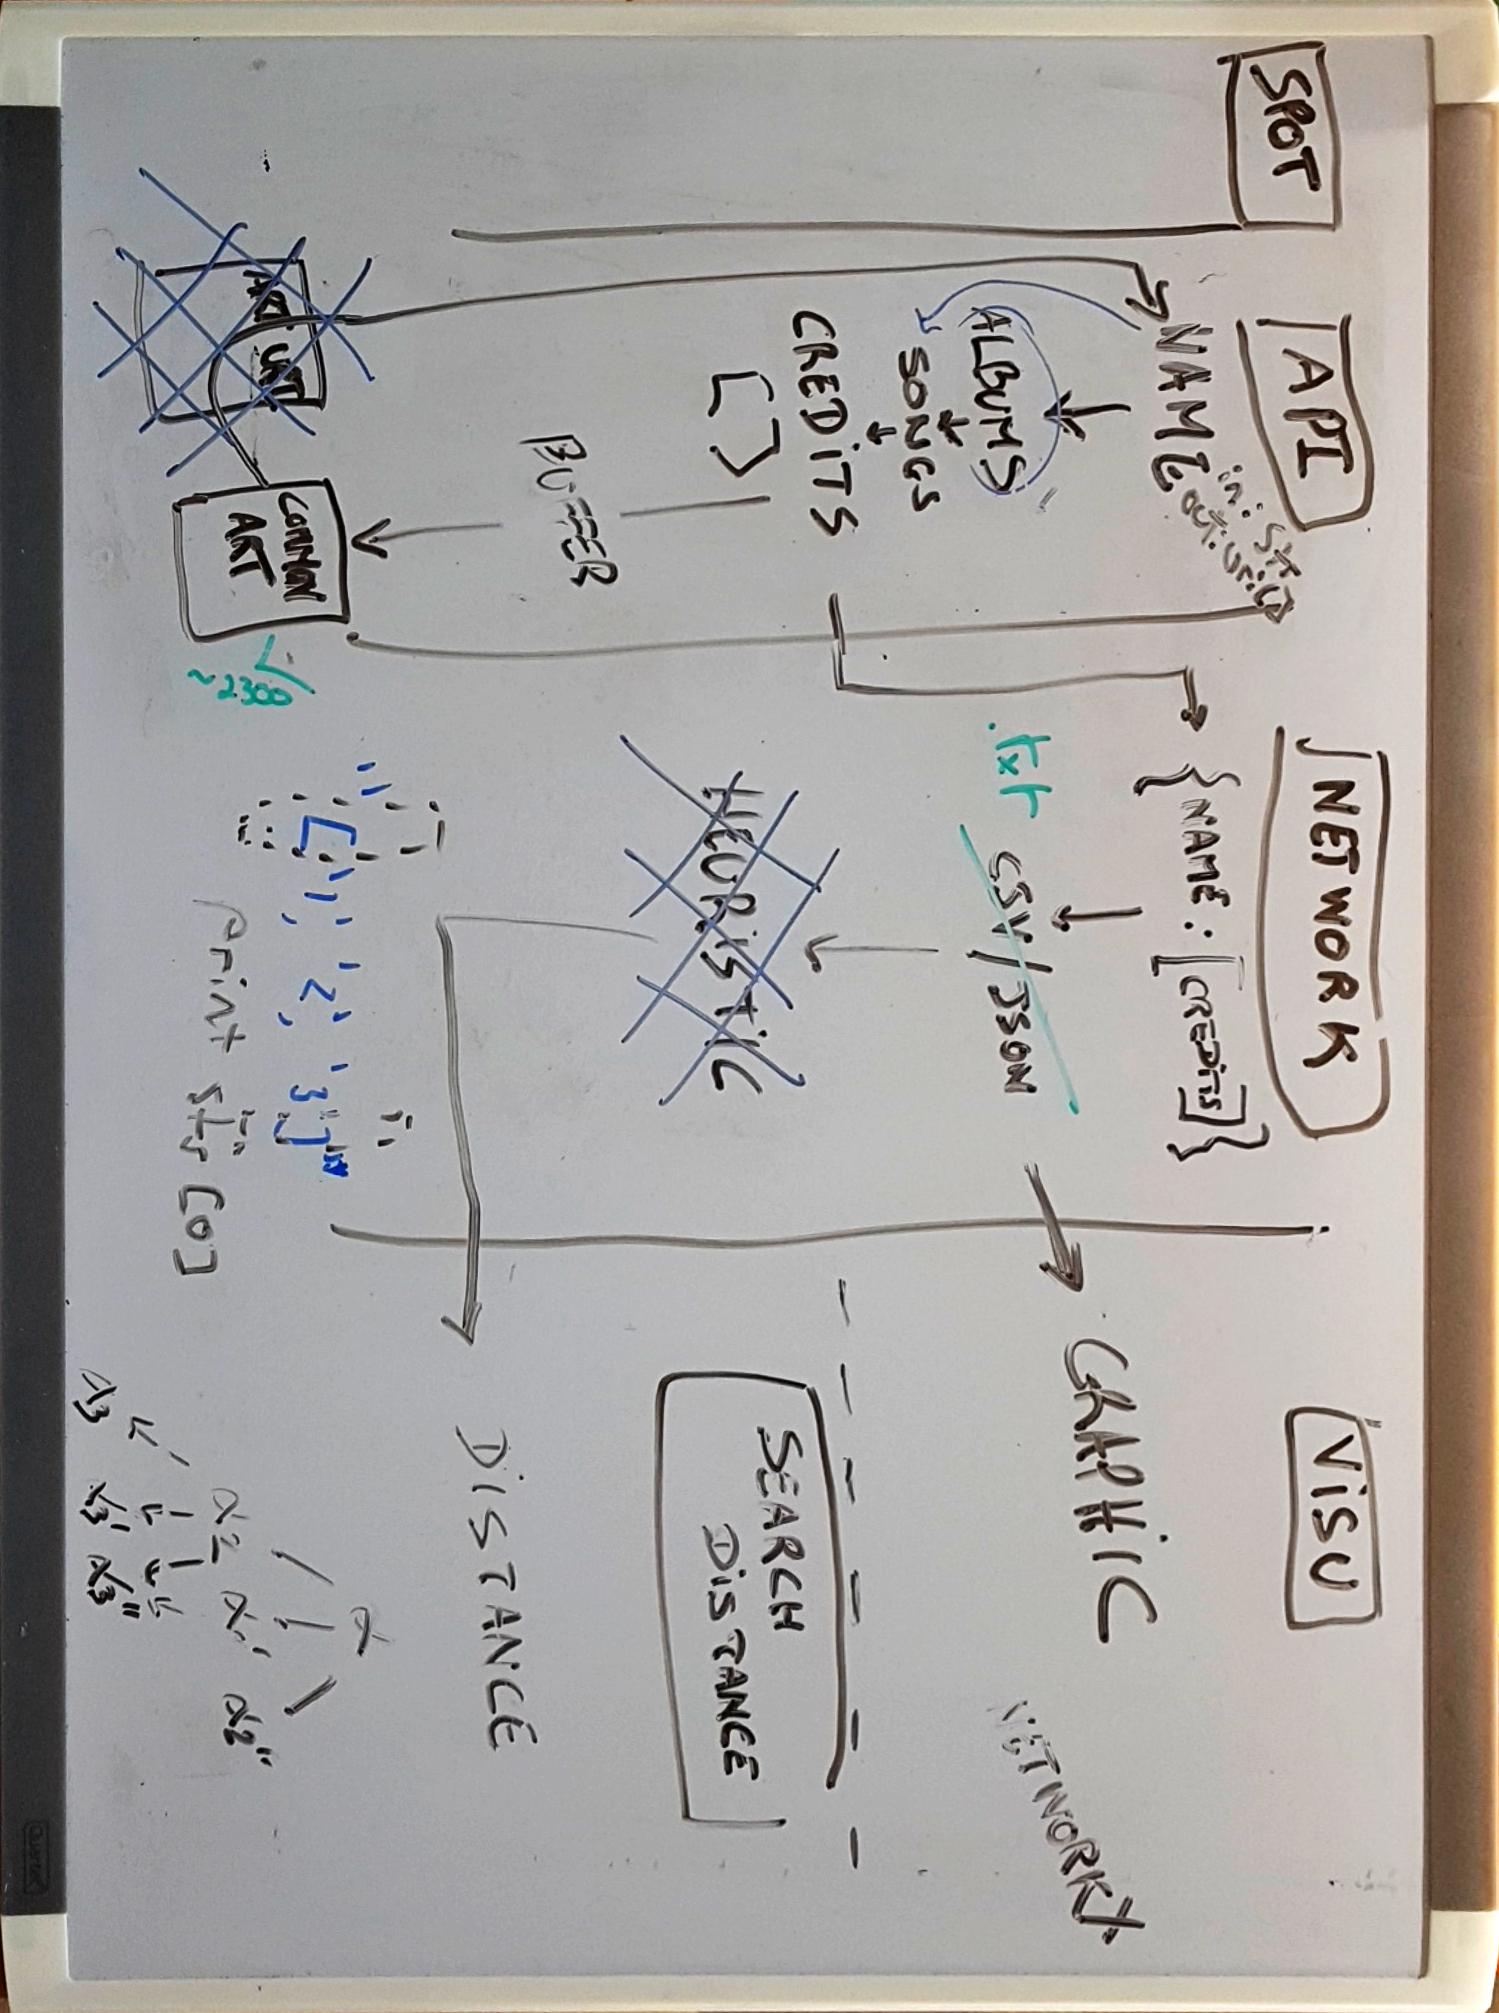 SPOT
API
NAME
in: str
out: uri
ALBUMS
SONGS
CREDITS
[ ]
BUFFER
ART URI
COMMON
ART
~2300
NETWORK
{NAME: [CREDITS]}
.txt
CSV/JSON
HEURISTIC
print str [0]
VISU
GRAPHIC
NETWORKX
SEARCH
DISTANCE
DISTANCE
Quartet